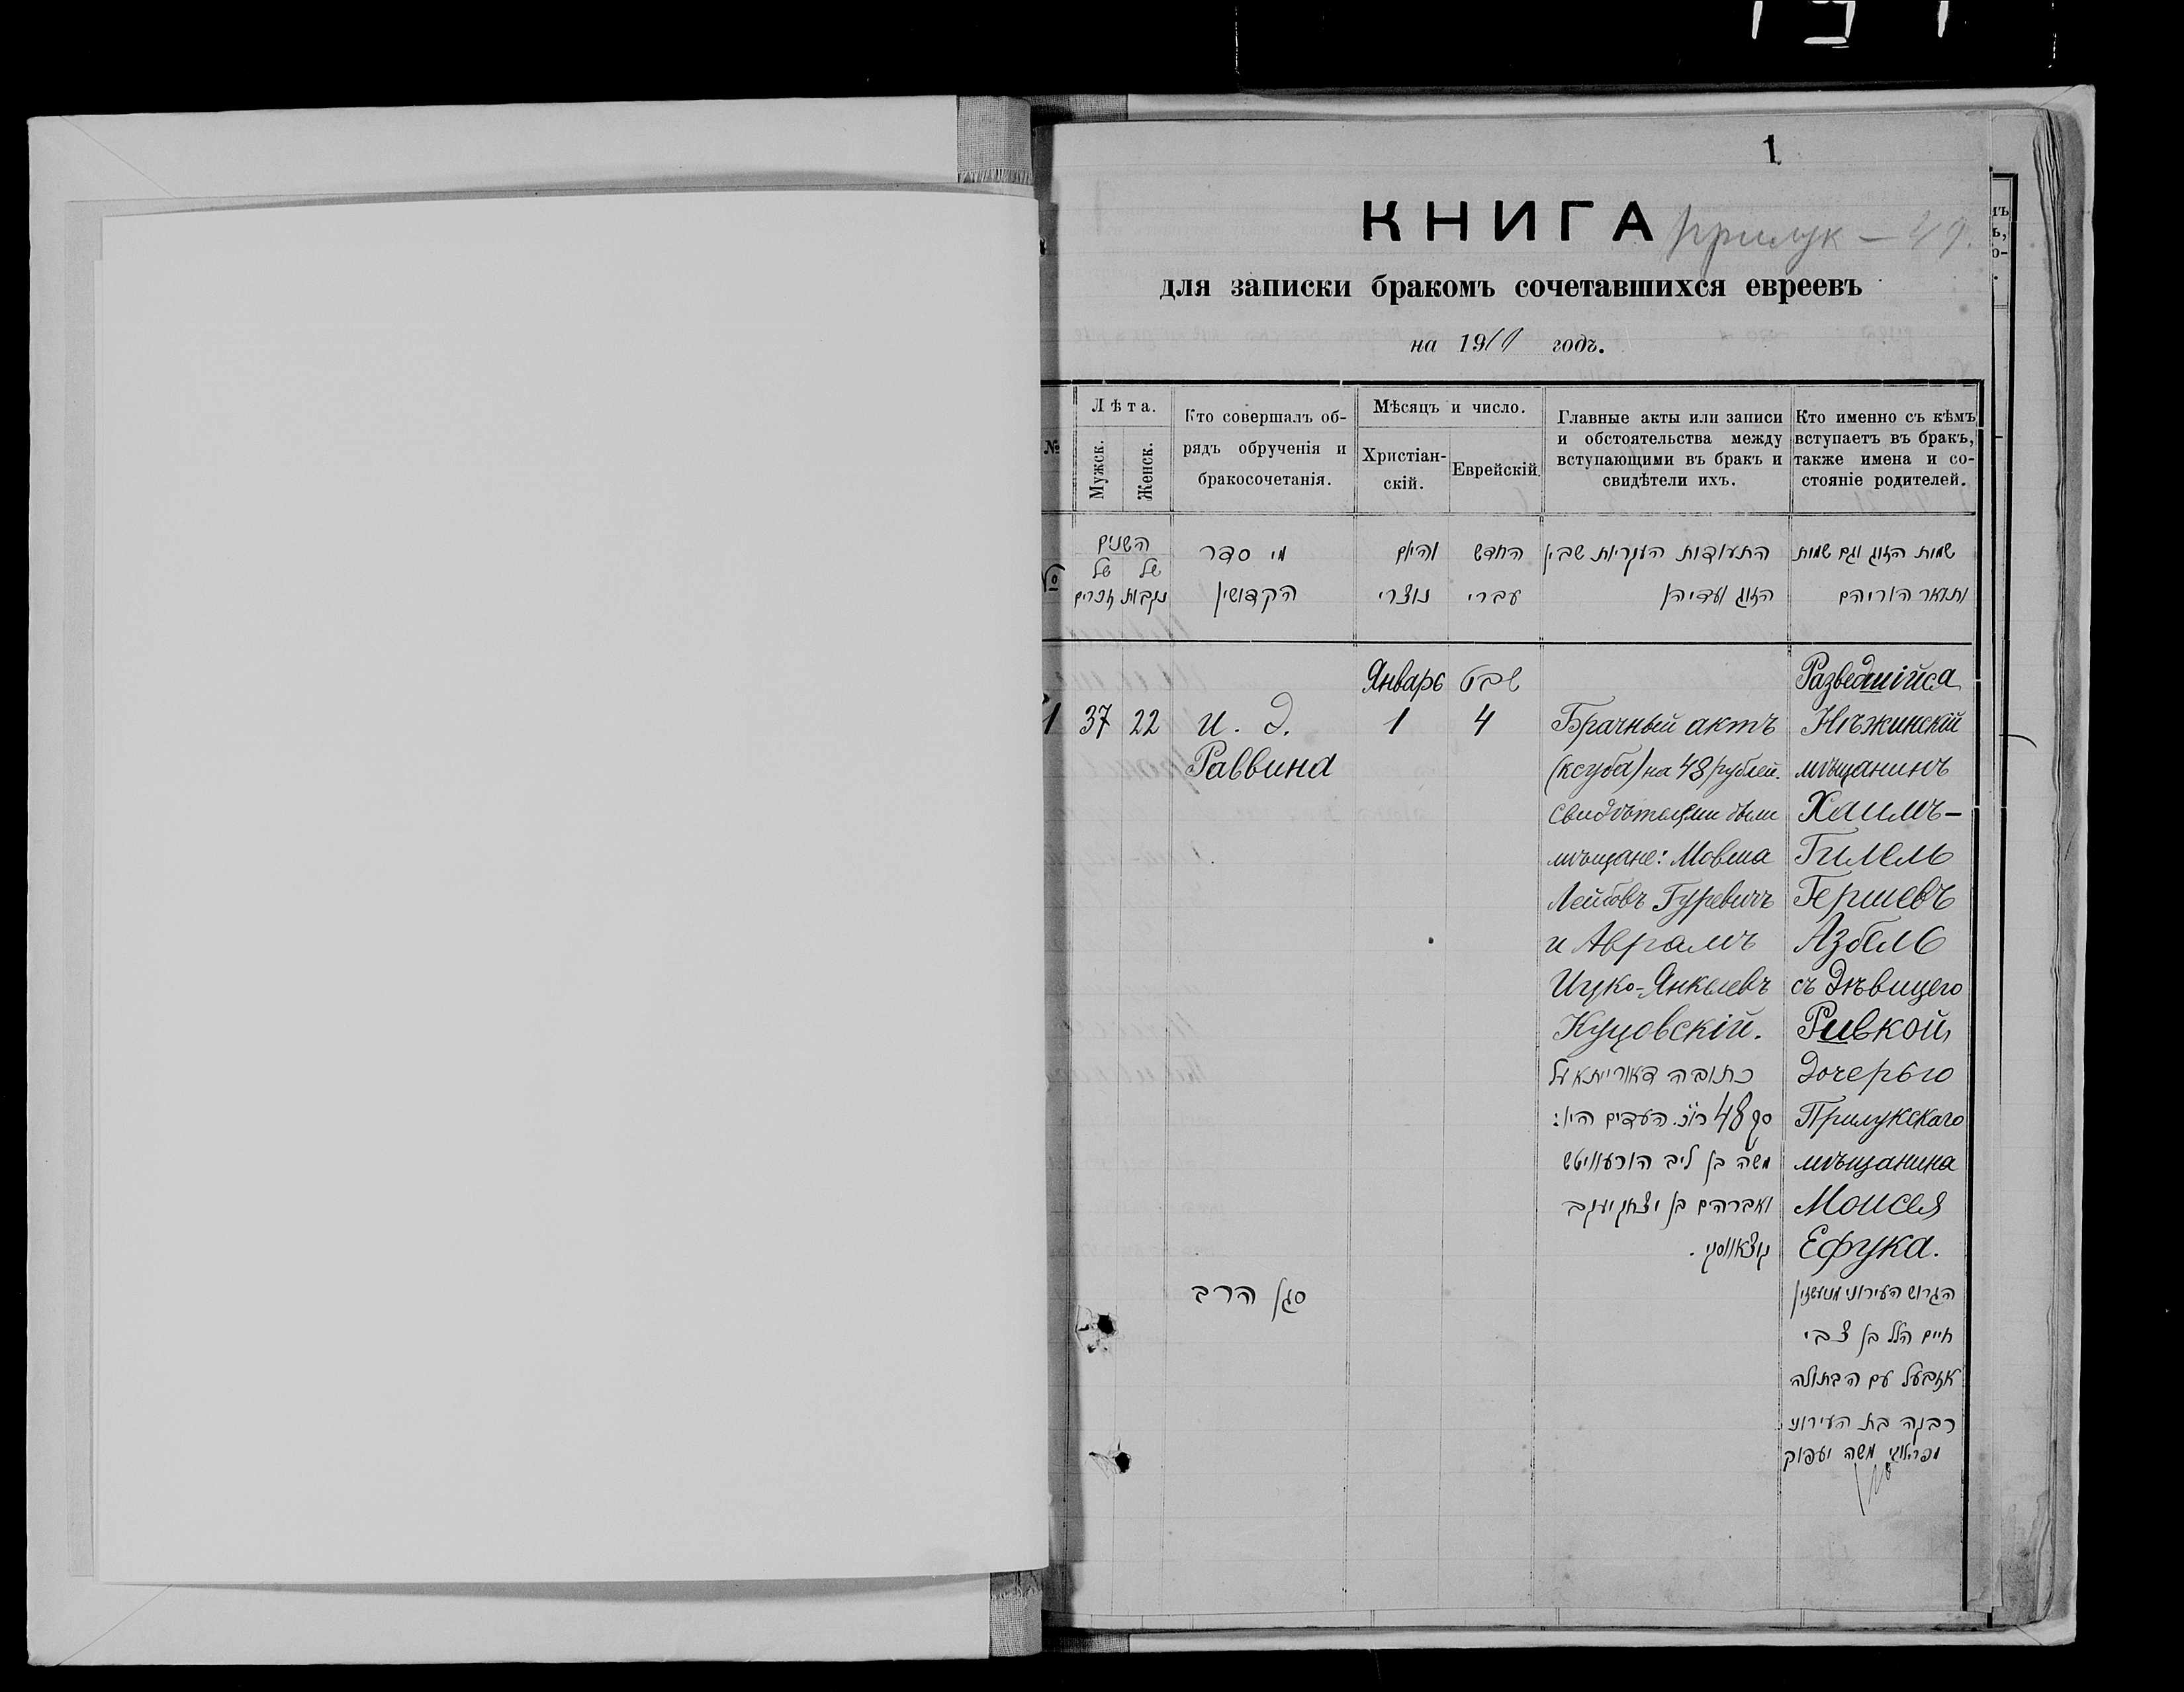 1
КНИГА Прилук - 49.
для записки бракомъ сочетавшихся евреевъ
на 1911 годъ.
№
Лѣта.
Мужск.
Женск.
Кто совершалъ об-
рядъ обрученія и
бракосочетанія.
Мѣсяцъ и число.
Христіан-
скій.
Еврейскій.
Главные акты или записи
и обстоятельства между
вступающими въ бракъ и
свидѣтели ихъ.
Кто именно съ кѣмъ
вступаетъ въ бракъ,
также имена и со-
стояніе родителей.
№
השנים
של של
נקבות זכרים
מי סדר
הקדושין
והיום
נוצרי
החדש
עברי
התעודות העקריות שבין
הזוג ועדיהן
שמות הזוג וגם שמות
ותואר הוריהם
1
37
22
и. д.
Раввина
סגן הרב
Январь
1
שבט
4
Брачный актъ
(ксуба) на 48 рублей.
Свидѣтелями были
мѣщане: Мовша
Лейбовъ Гуревичъ
и Аврамъ
Ицко-Янкелевъ
Куцовскій.
כתובה דאורייתא על
סך 48 רו״כ. העדים היו:
משה בן ליב הורעוויטש
ואברהם בן יצחק יעקב
קוצאווסקי.
Разведшійся
Нѣжинскій
мѣщанинъ
Хаимъ-
Гилель
Гершевъ
Азбель
съ Дѣвицею
Ривкой,
дочерью
Прилукскаго
мѣщанина
Моисея
Ефука.
הגרוש העירוני מניעשזין
חיים הלל בן צבי
אזבעל עם הבתולה
רבקה בת העירוני
מפרילוקי משה יעפוק